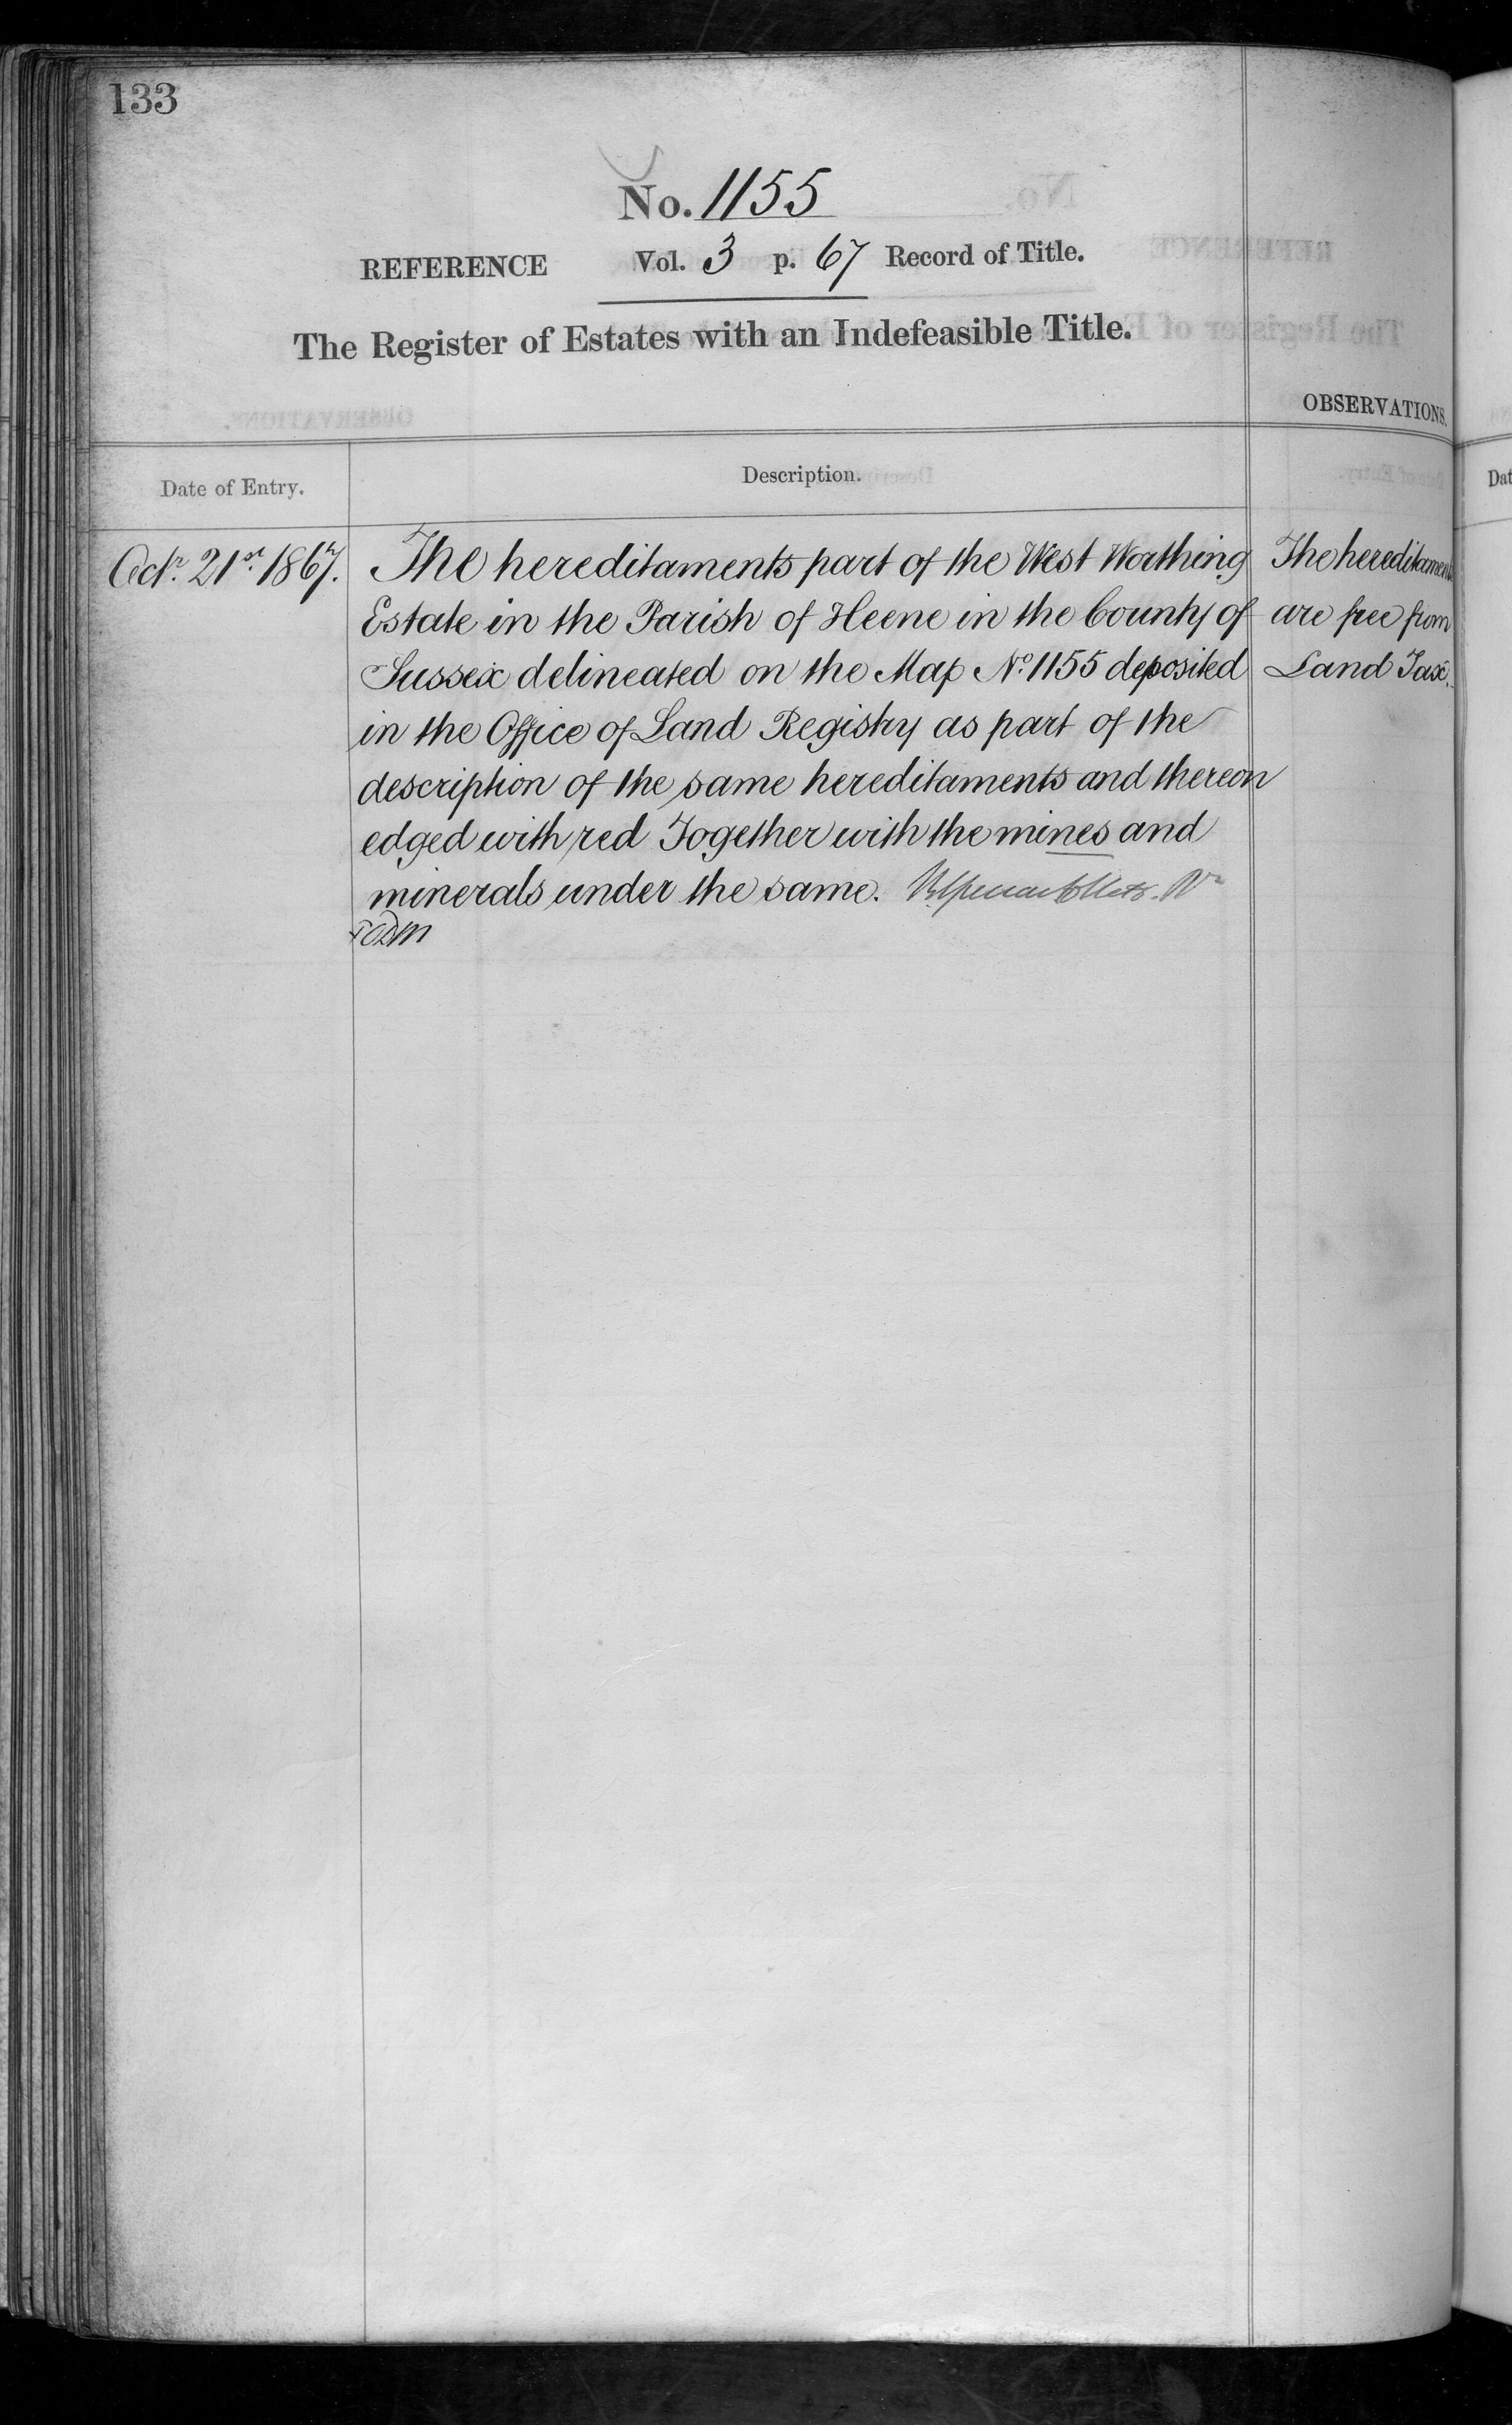 133
No. 1155
REFERENCE Vol. 3 p. 67 Record of Title.
The Register of Estates with an Indefeasible Title.
OBSERVATIONS.
Date of Entry.
Description.
Octr. 21st. 1867.
The hereditaments part of the West Worthing
Estate in the Parish of Heene in the County of
Sussex delineated on the Map No. 1155 deposited
in the Office of Land Registry as part of the
description of the same hereditaments and thereon
edged with red Together with the mines and
minerals under the same.
The hereditaments
are free from
Land Tax.
Dat